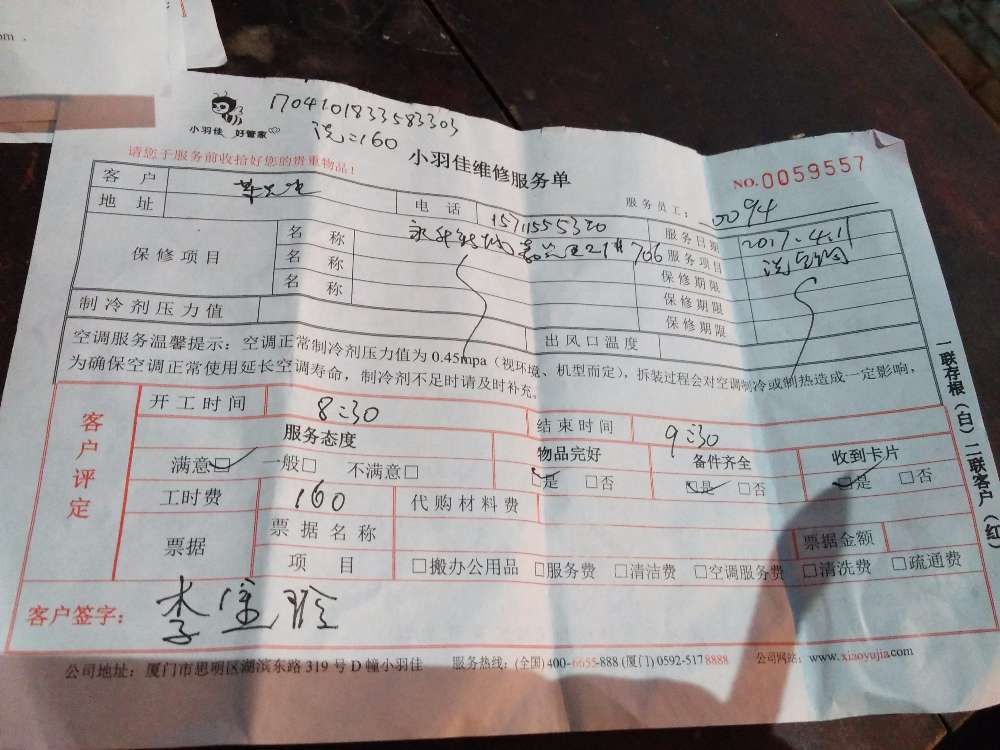 om .
1704101833583303
洗=160
小羽佳 好管家
小羽佳维修服务单
NO.0059557
请您于服务前收拾好您的贵重物品！
服务员工： 0094
客 户 电 话 15711555320 服务日期 2017.4.11
地 址 706 服务项目 洗空调
保修项目 名 称 保修期限
名 称 保修期限
名 称 保修期限
制冷剂压力值 出风口温度
空调服务温馨提示：空调正常制冷剂压力值为 0.45mpa（视环境、机型而定），拆装过程会对空调制冷或制热造成一定影响，
为确保空调正常使用延长空调寿命，制冷剂不足时请及时补充。
客户评定
开工时间 8:30 结束时间 9:30
服务态度 物品完好 备件齐全 收到卡片
满意☑ 一般□ 不满意□ ☑是 □否 ☑是 □否 ☑是 □否
工时费 160 代购材料费
票据 票据名称 票据金额
项 目 □搬办公用品 □服务费 □清洁费 □空调服务费 □清洗费 □疏通费
客户签字： 李
公司地址：厦门市思明区湖滨东路 319 号 D 幢小羽佳 服务热线：(全国) 400-6655-888 (厦门) 0592-5178888 公司网站：www.xiaoyujia.com
一联存根（白）二联客户（红）